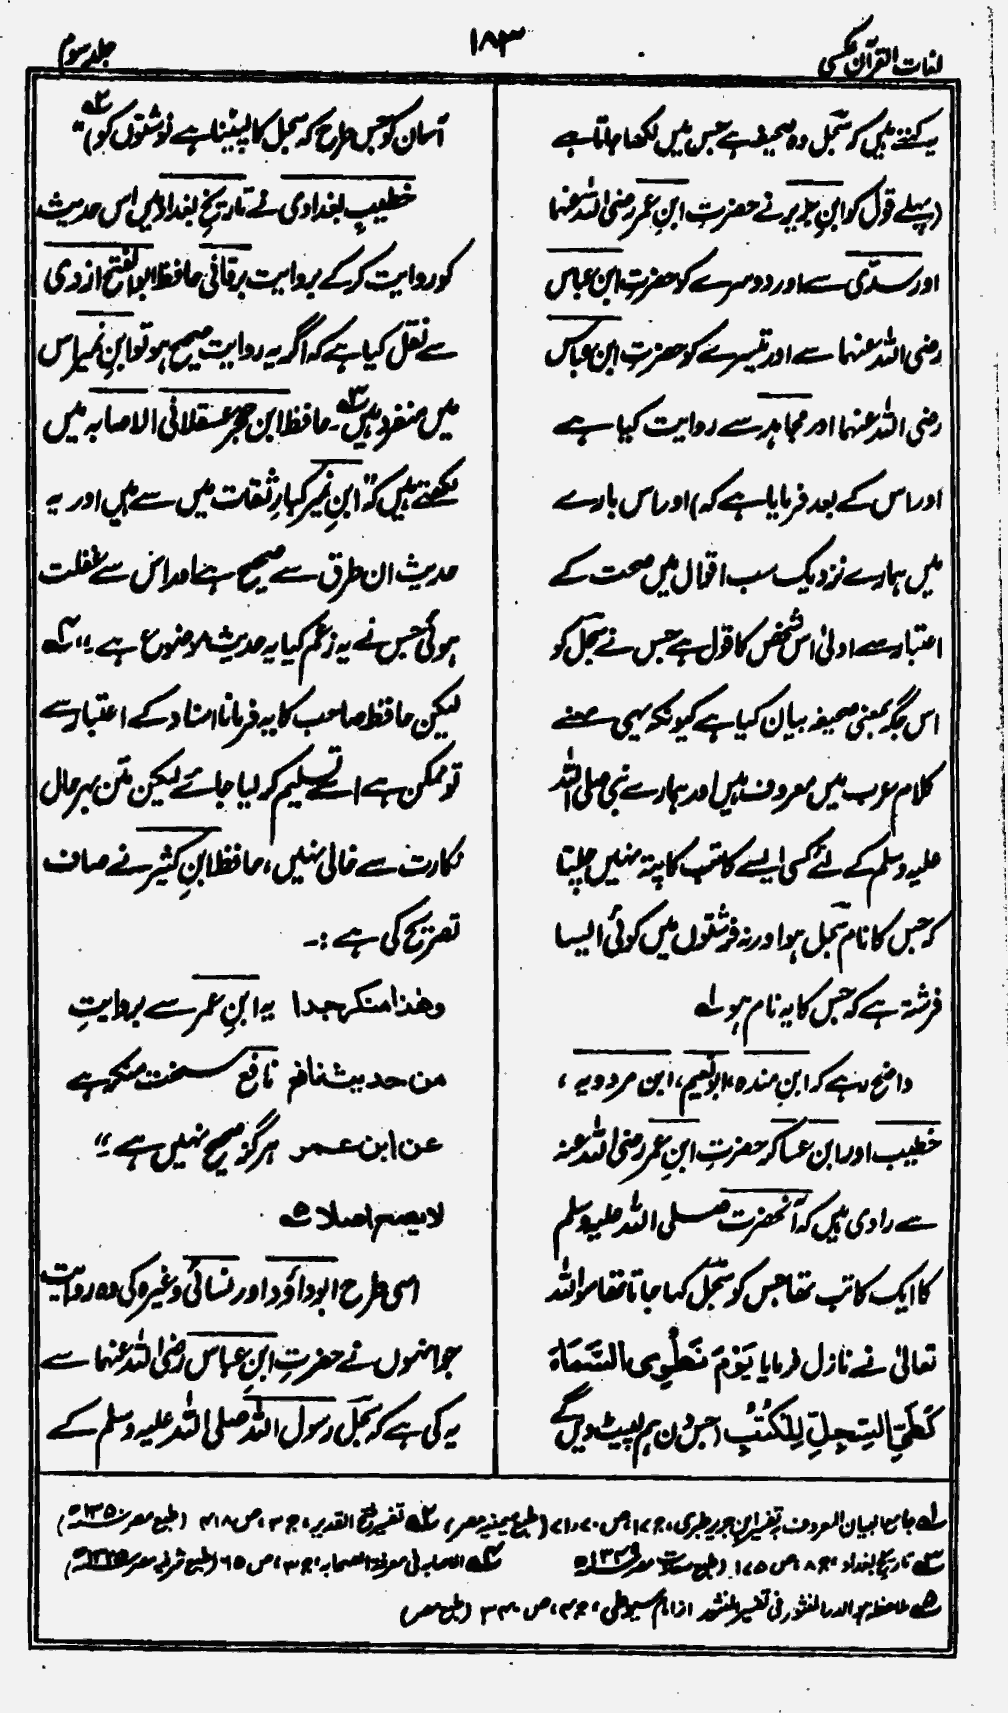 لغات القرآن عکسی
۱۸۳
جلد سوم
یہ کہتے ہیں کہ سجل وہ صحیفہ ہے جس میں لکھا جاتا ہے
(پہلے قول کو ابنِ جریر نے حضرتِ ابنِ عمر رضی اللہ عنہما
اور سدّی سے اور دوسرے کو حضرتِ ابن عباس
رضی اللہ عنہما سے اور تیسرے کو حضرتِ ابن عباس
رضی اللہ عنہما اور مجاہد سے روایت کیا ہے
اور اس کے بعد فرمایا ہے کہ) اور اس بارے
میں ہمارے نزدیک سب اقوال میں صحت کے
اعتبار سے اولیٰ اس شخص کا قول ہے جس نے سجل کو
اس جگہ بمعنی صحیفہ بیان کیا ہے کیونکہ یہی معنے
کلام عرب میں معروف ہیں اور ہمارے نبی صلی اللہ
علیہ وسلم کے لئے کسی ایسے کاتب کا پتہ نہیں چلتا
کہ جس کا نام سجل ہو اور نہ فرشتوں میں کوئی ایسا
فرشتہ ہے کہ جس کا یہ نام ہو ۱ے
واضح رہے کہ ابنِ مندہ، ابونعیم، ابن مردویہ،
خطیب اور ابن عساکر حضرتِ ابنِ عمر رضی اللہ عنہ
سے راوی ہیں کہ آنحضرت صلی اللہ علیہ وسلم
کا ایک کاتب تھا جس کو سجل کہا جاتا تھا سو اللہ
تعالیٰ نے نازل فرمایا یَوْمَ نَطْوِی السَّمَاءَ
کَطَیِّ السِّجِلِّ لِلْکُتُبِ (جس دن ہم لپیٹ دیں گے
آسمان کو جس طرح کہ سجل کا لپیٹنا ہے نوشتوں کو)" ۲ے
خطیبِ بغدادی نے تاریخِ بغداد میں اس حدیث
کو روایت کر کے بروایت برقانی حافظ ابوالفتح ازدی
سے نقل کیا ہے کہ اگر یہ روایت صحیح ہو تو ابنِ نمیر اس
میں منفرد ہیں ۳ے۔ حافظ ابن حجر عسقلانی الاصابہ میں
لکھتے ہیں کہ "ابنِ نمیر کبارِ ثقات میں سے ہیں اور یہ
حدیث ان طرق سے صحیح ہے اور اس سے غفلت
ہوئی جس نے یہ زعم کیا یہ حدیث موضوع ہے۔" ۴ے
لیکن حافظ صاحب کا یہ فرمانا اسناد کے اعتبار سے
تو ممکن ہے اسے تسلیم کر لیا جائے لیکن متن بہر حال
نکارت سے خالی نہیں، حافظ ابنِ کثیر نے صاف
تصریح کی ہے :۔
وھذا منکر جدا یہ ابنِ عمر سے بروایتِ
من حدیث نافع نافع سخت منکر ہے
عن ابن عمر ہرگز صحیح نہیں ہے۔"
لا یصح اصلا ۵ے
اسی طرح ابوداؤد اور نسائی وغیرہ کی وہ روایت
جو انہوں نے حضرتِ ابنِ عباس رضی اللہ عنہما سے
یہ کی ہے کہ سجل رسول اللہ صلی اللہ علیہ وسلم کے
۱ے جامع البیان المعروف بتفسیر ابنِ جریر طبری، ج ۱۷، ص ۷۰، ۷۱ (طبع میمنیہ مصر) ۲ے تفسیر فتح القدیر، ج ۳، ص ۴۱۸ (طبع مصر ۱۳۵۰ھ)
۳ے تاریخ بغداد، ج ۸، ص ۱۷۵ (طبع سعادت مصر ۱۳۴۹ھ) ۴ے الاصابہ فی معرفۃ الصحابہ، ج ۳، ص ۶۵ (طبع شرفیہ مصر ۱۳۲۵ھ)
۵ے ملاحظہ ہو الدر المنثور فی تفسیر المنثور از امام سیوطی، ج ۴، ص ۳۴۰ (طبع مصر)